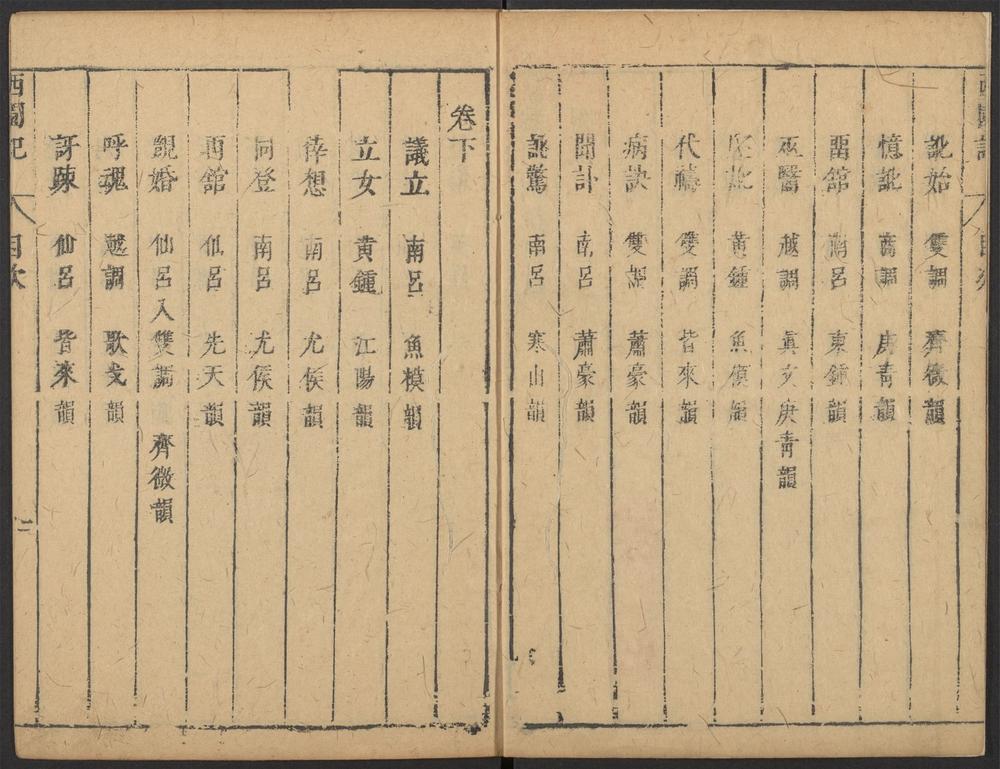 訛始　雙調　齊微韻
憶訛　商調　庚青韻
畱館　南呂　東鍾韻
巫醫　越調　真文庚青韻
堅訛　黃鍾　魚模韻
代禱　雙調　皆來韻
病訣　雙調　蕭豪韻
聞訃　南呂　蕭豪韻
訛驚　南呂　寒山韻
卷下
議立　南呂　魚模韻
立女　黃鍾　江陽韻
倖想　南呂　尤侯韻
同登　南呂　尤侯韻
再館　仙呂　先天韻
覬婚　仙呂入雙調　齊微韻
呼魂　越調　歌戈韻
訝疎　仙呂　皆來韻
目次
二